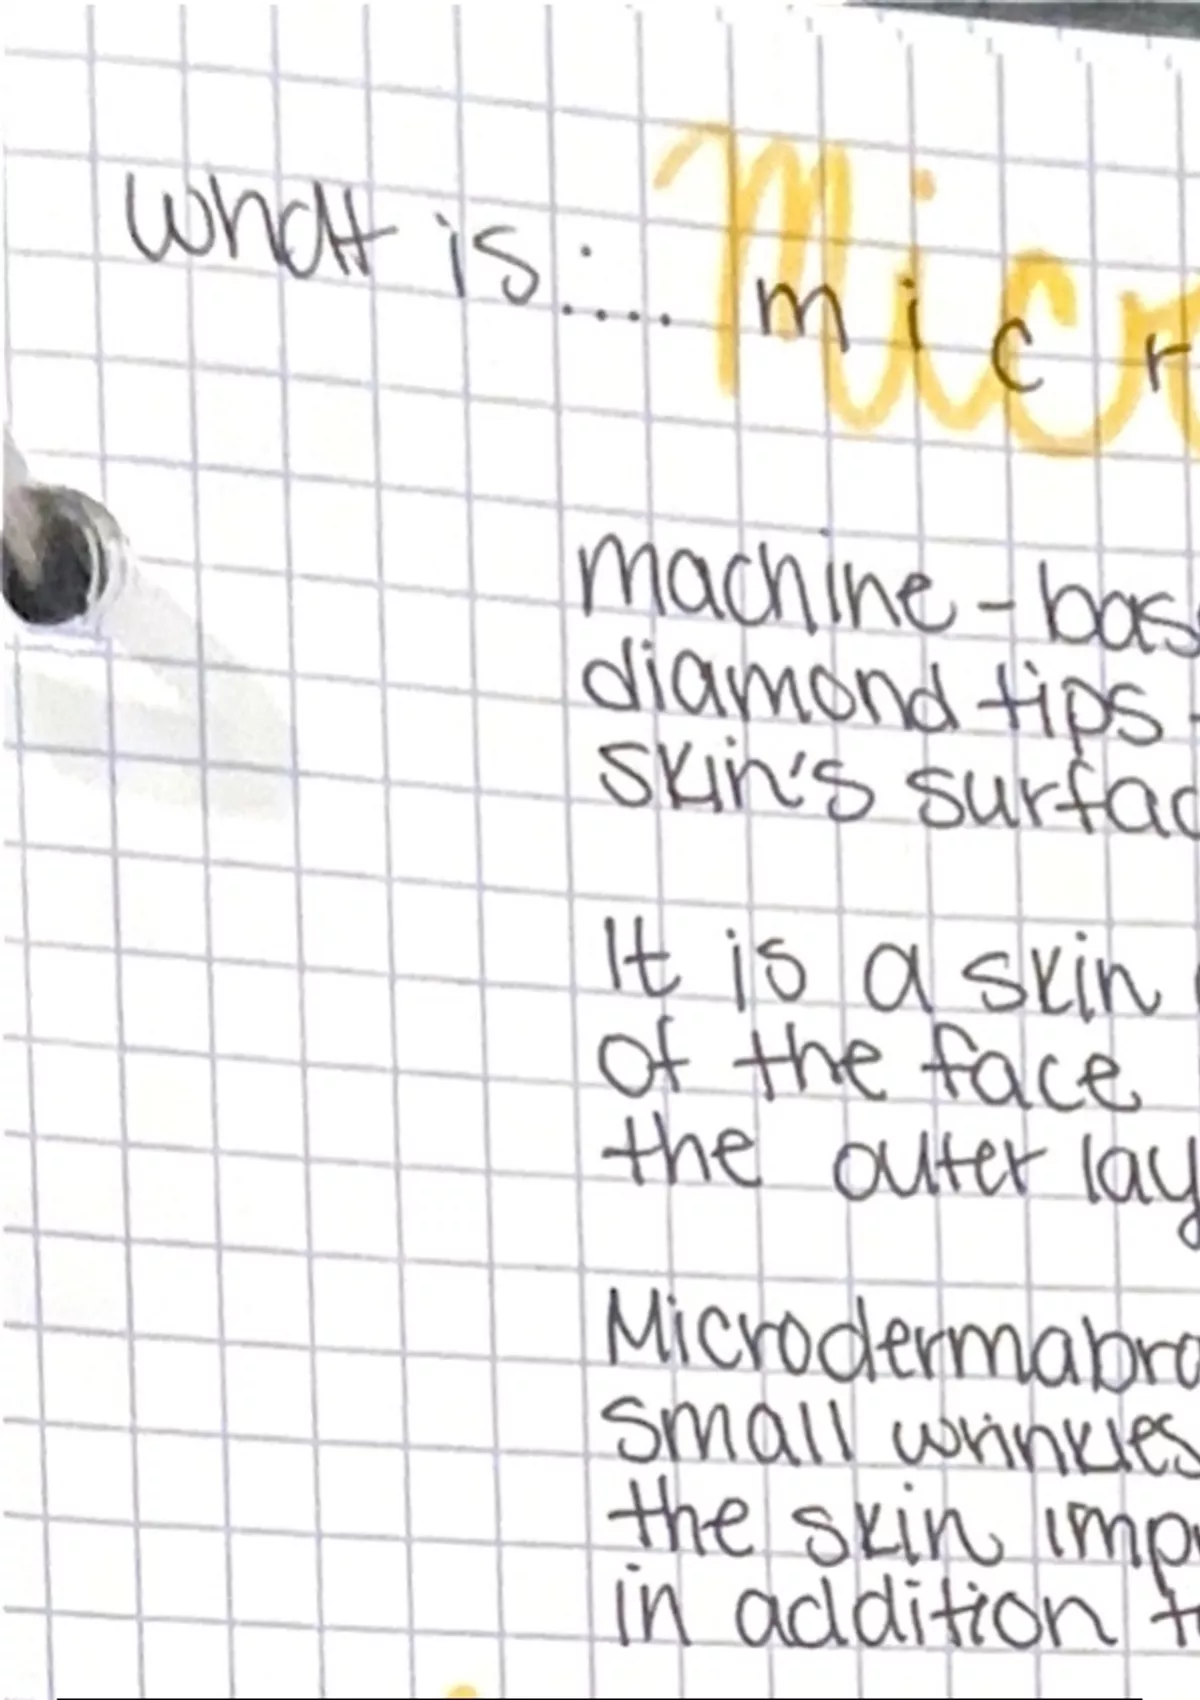 What is: .... Micr
m i c r
machine-bas
diamond tips -
skin's surfac
It is a skin
of the face
the outer lay
Microdermabra
small wrinkles
the skin impr
in addition t